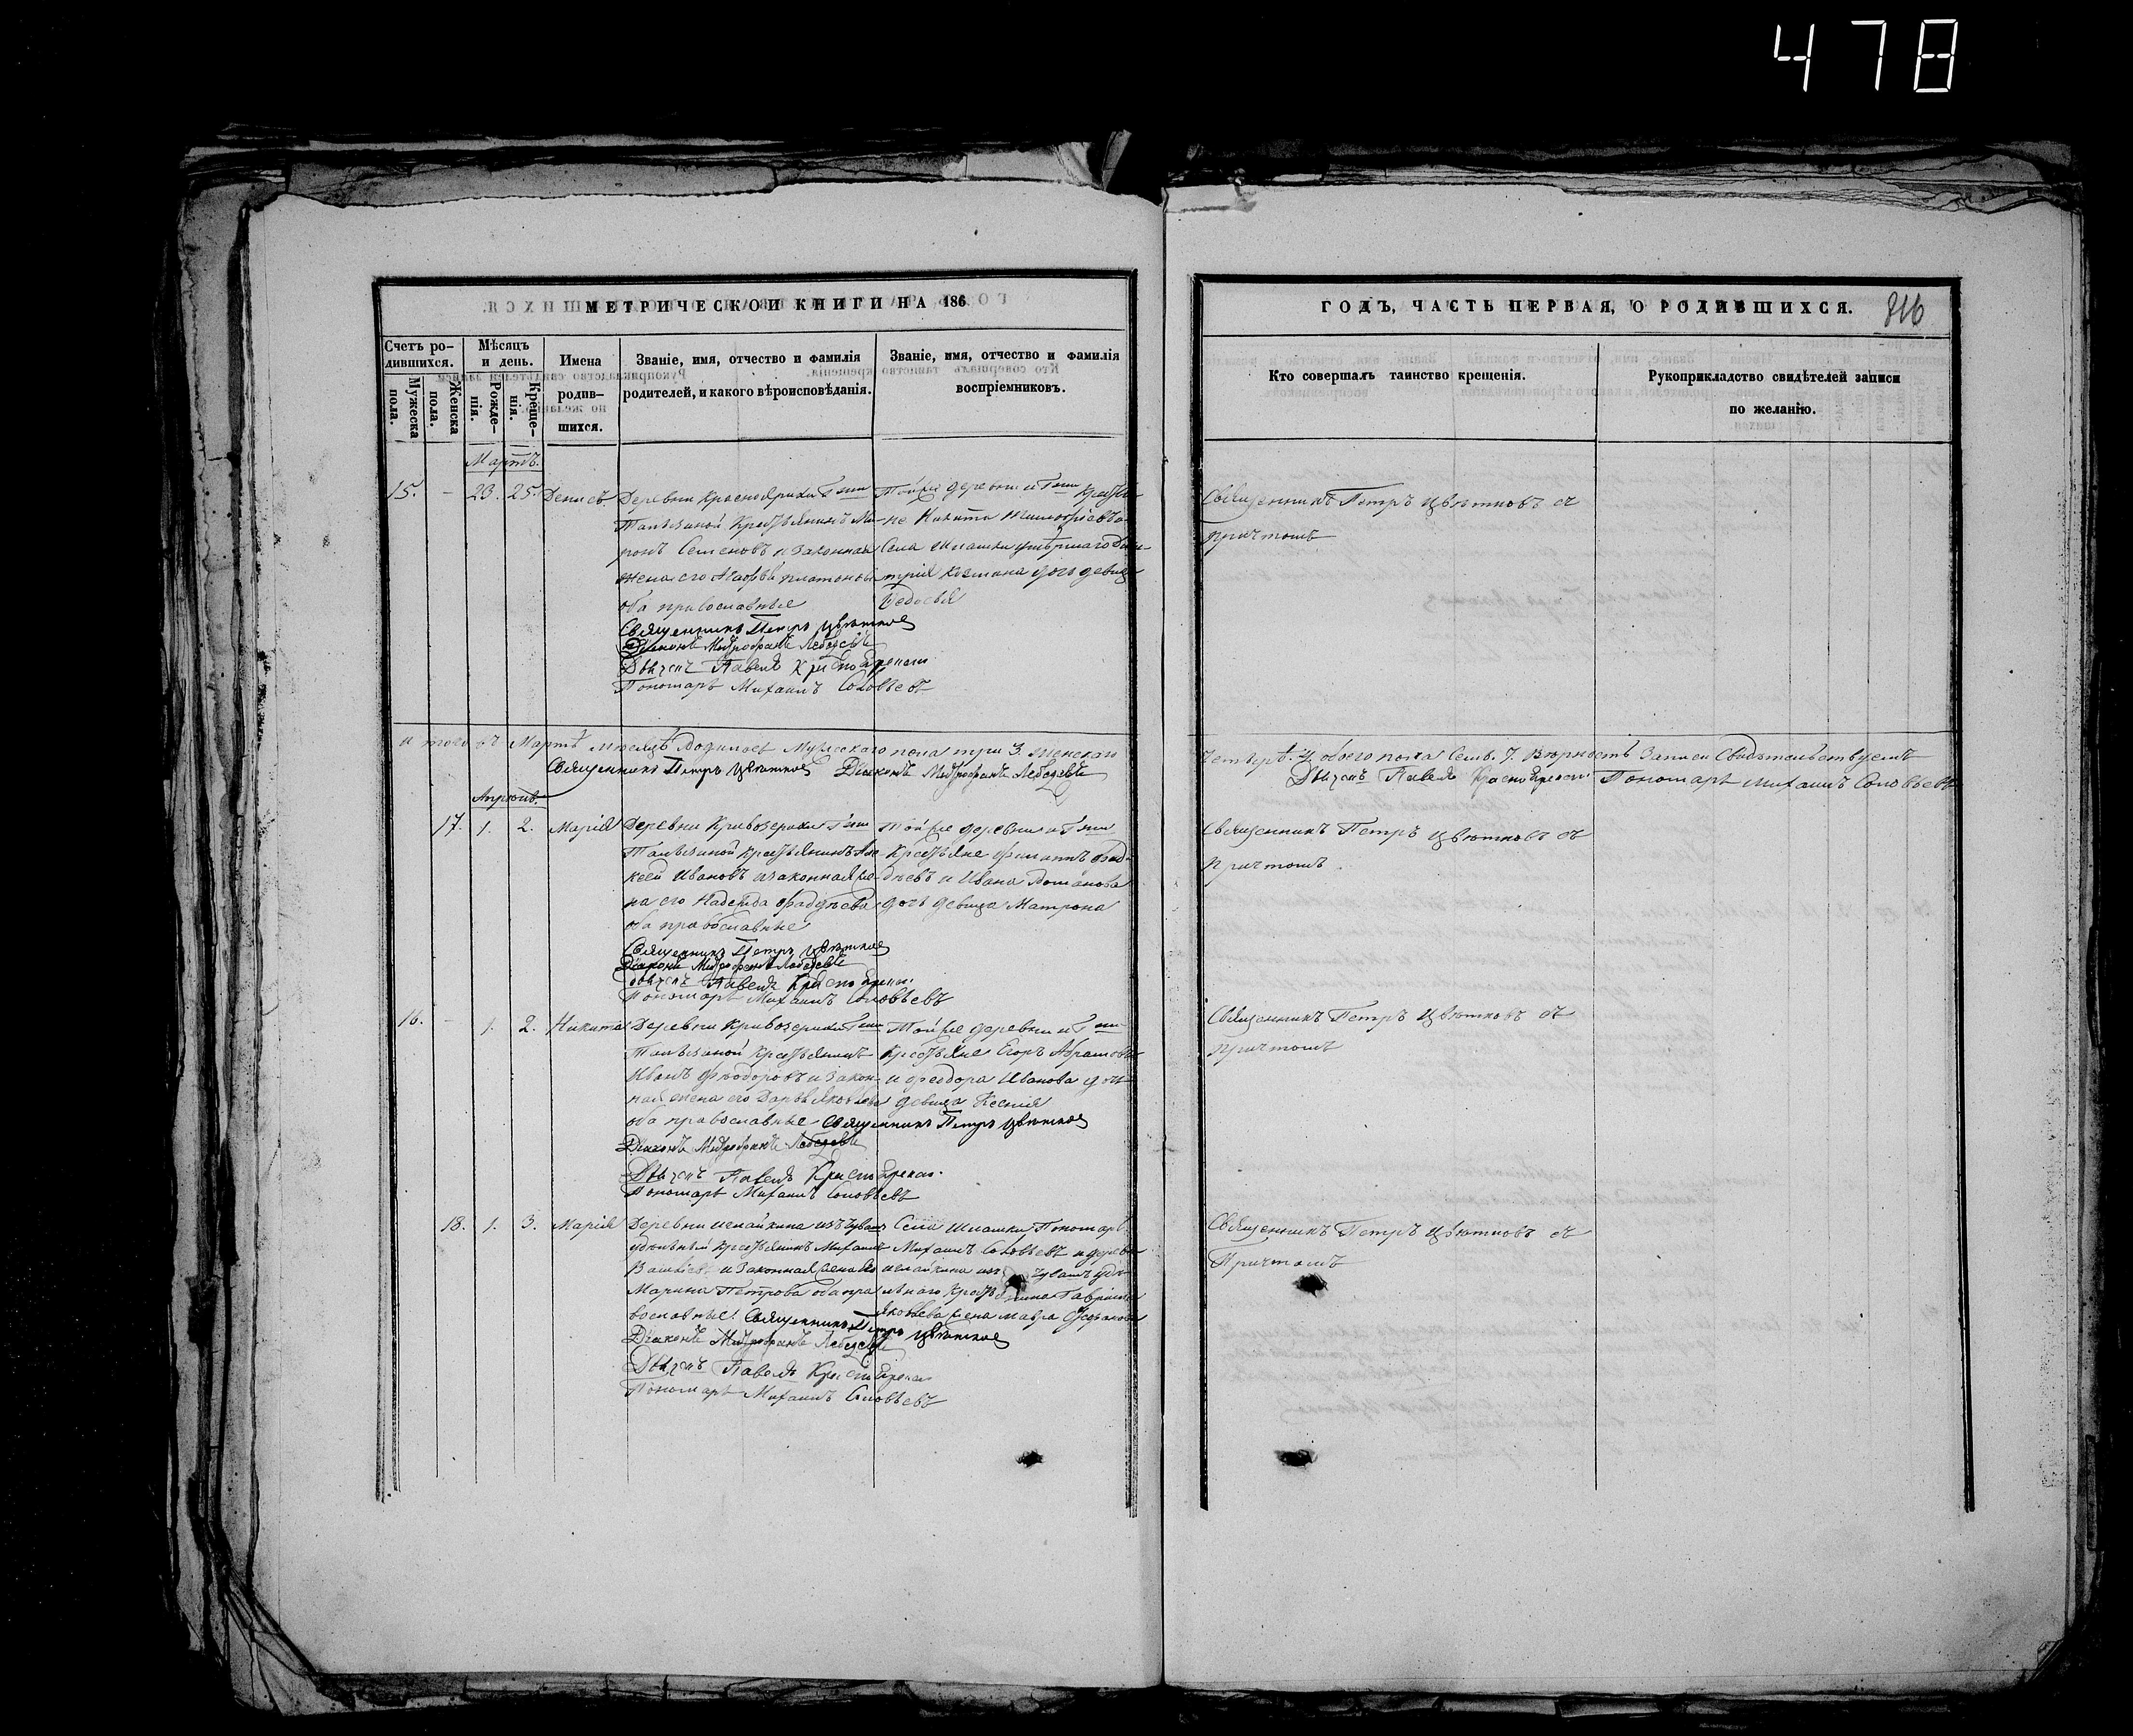 478
МЕТРИЧЕСКОЙ КНИГИ НА 186
Счетъ ро-
дившихся.
Мужеска
пола.
Женска
пола.
Мѣсяцъ
и день.
Рожде-
нія.
Креще-
нія.
Имена
родив-
шихся.
Званіе, имя, отчество и фамилія
родителей, и какого вѣроисповѣданія.
Званіе, имя, отчество и фамилія
воспріемниковъ.
Мартъ.
15. - 23. 25. Денисъ.
Деревни Красноярихи Гжи
Крестьянинъ Ми-
ронъ Семеновъ и законная
жена его Агафья Платонова
оба православные
Священникъ Петръ Цвѣтковъ
Діаконъ Митрофанъ Лебедевъ
Дьячекъ Павелъ
Пономарь Михаилъ Соловьевъ
Той же деревни и Гжи Крестья-
не Никита
Села умершаго Дми-
трія дочь девица
Ѳедосья
и того въ Мартѣ месяцѣ Родилось Мужескаго пола три 3. Женскаго
Священникъ Петръ Цвѣтковъ Діаконъ Митрофанъ Лебедевъ
Апрѣль.
17. 1. 2. Марія
Деревни Кривозерихи Гжи
Крестьянинъ Але-
ксѣй Ивановъ и законная же-
на его Надежда Фадѣева
оба православные
Священникъ Петръ Цвѣтковъ
Діаконъ Митрофанъ Лебедевъ
Дьячекъ Павелъ
Пономарь Михаилъ Соловьевъ
Той же деревни и Гжи
Крестьяне Филиппъ Фад-
дѣевъ и Ивана Романова
дочь девица Матрона
16. - 1. 2. Никита
Деревни Кривозерихи Гжи
Крестьянинъ
Иванъ Фѣодоровъ и закон-
ная жена его Дарья Яковлева
оба православные Священникъ Петръ Цвѣтковъ
Діаконъ Митрофанъ Лебедевъ
Дьячекъ Павелъ
Пономарь Михаилъ Соловьевъ
Той же деревни и Гжи
Крестьяне Егоръ Абрамовъ
и Ѳеодора Иванова дочь
девица Ксенія
18. 1. 3. Марія
Деревни изъ Чувашъ
удѣльный Крестьянинъ Михаилъ
и законная жена его
Марина Петрова оба пра-
вославные. Священникъ Петръ Цвѣтковъ
Діаконъ Митрофанъ Лебедевъ
Дьячекъ Павелъ
Пономарь Михаилъ Соловьевъ
Села Пономарь
Михаилъ Соловьевъ и дерев.
изъ Чувашъ удѣ-
льнаго Гаврила
Яковлева жена Мавра
ГОДЪ, ЧАСТЬ ПЕРВАЯ, О РОДИВШИХСЯ.
816
Кто совершалъ таинство крещенія.
Рукоприкладство свидѣтелей записи
по желанію.
Священникъ Петръ Цвѣтковъ съ
причтомъ
Четыре 4. обоего пола Семь. 7. Верность Записи Свидѣтельствуемъ
Дьячекъ Павелъ Пономарь Михаилъ Соловьевъ
Священникъ Петръ Цвѣтковъ съ
причтомъ.
Священникъ Петръ Цвѣтковъ съ
причтомъ
Священникъ Петръ Цвѣтковъ съ
Причтомъ